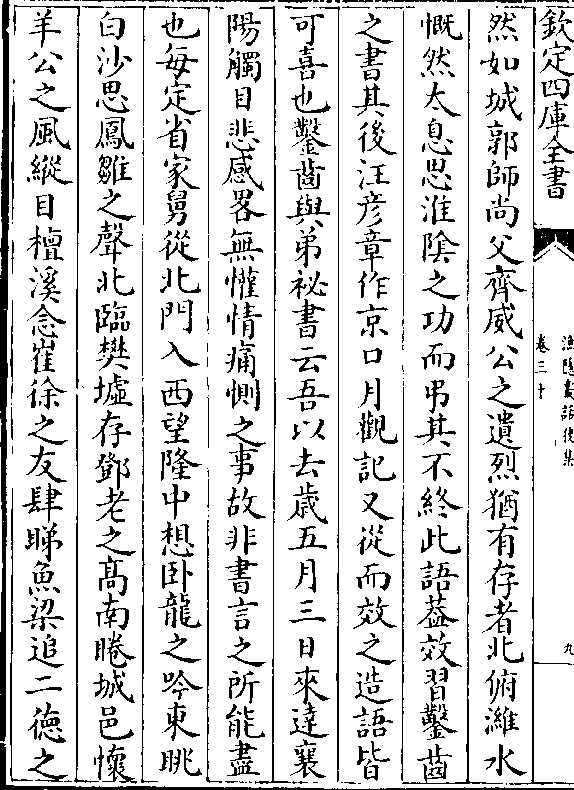 欽定四庫全書
漁隱叢話後集
卷三十
九
然如城郭師尚父齊威公之遺烈猶有存者北俯濰水
慨然太息思淮陰之功而弔其不終此語葢效習鑿齒
之書其後汪彦章作京口月觀記又從而效之造語皆
可喜也鑿齒與弟祕書云吾以去歲五月三日來達襄
陽觸目悲感畧無懽情痛惻之事故非書言之所能盡
也每定省家舅從北門入西望隆中想卧龍之吟東眺
白沙思鳳雛之聲北臨樊墟存鄧老之髙南睠城邑懷
羊公之風縱目檀溪念崔徐之友肆睇魚梁追二徳之